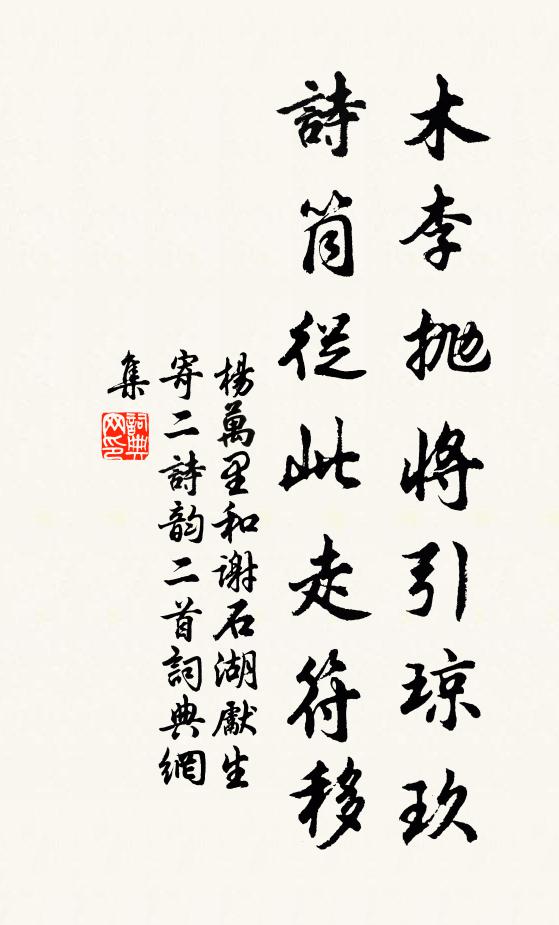 木李抛將引琼玖
詩筒從此走符移
楊萬里和謝石湖獻生
寄二詩韵二首詞典網
集
詞典网印